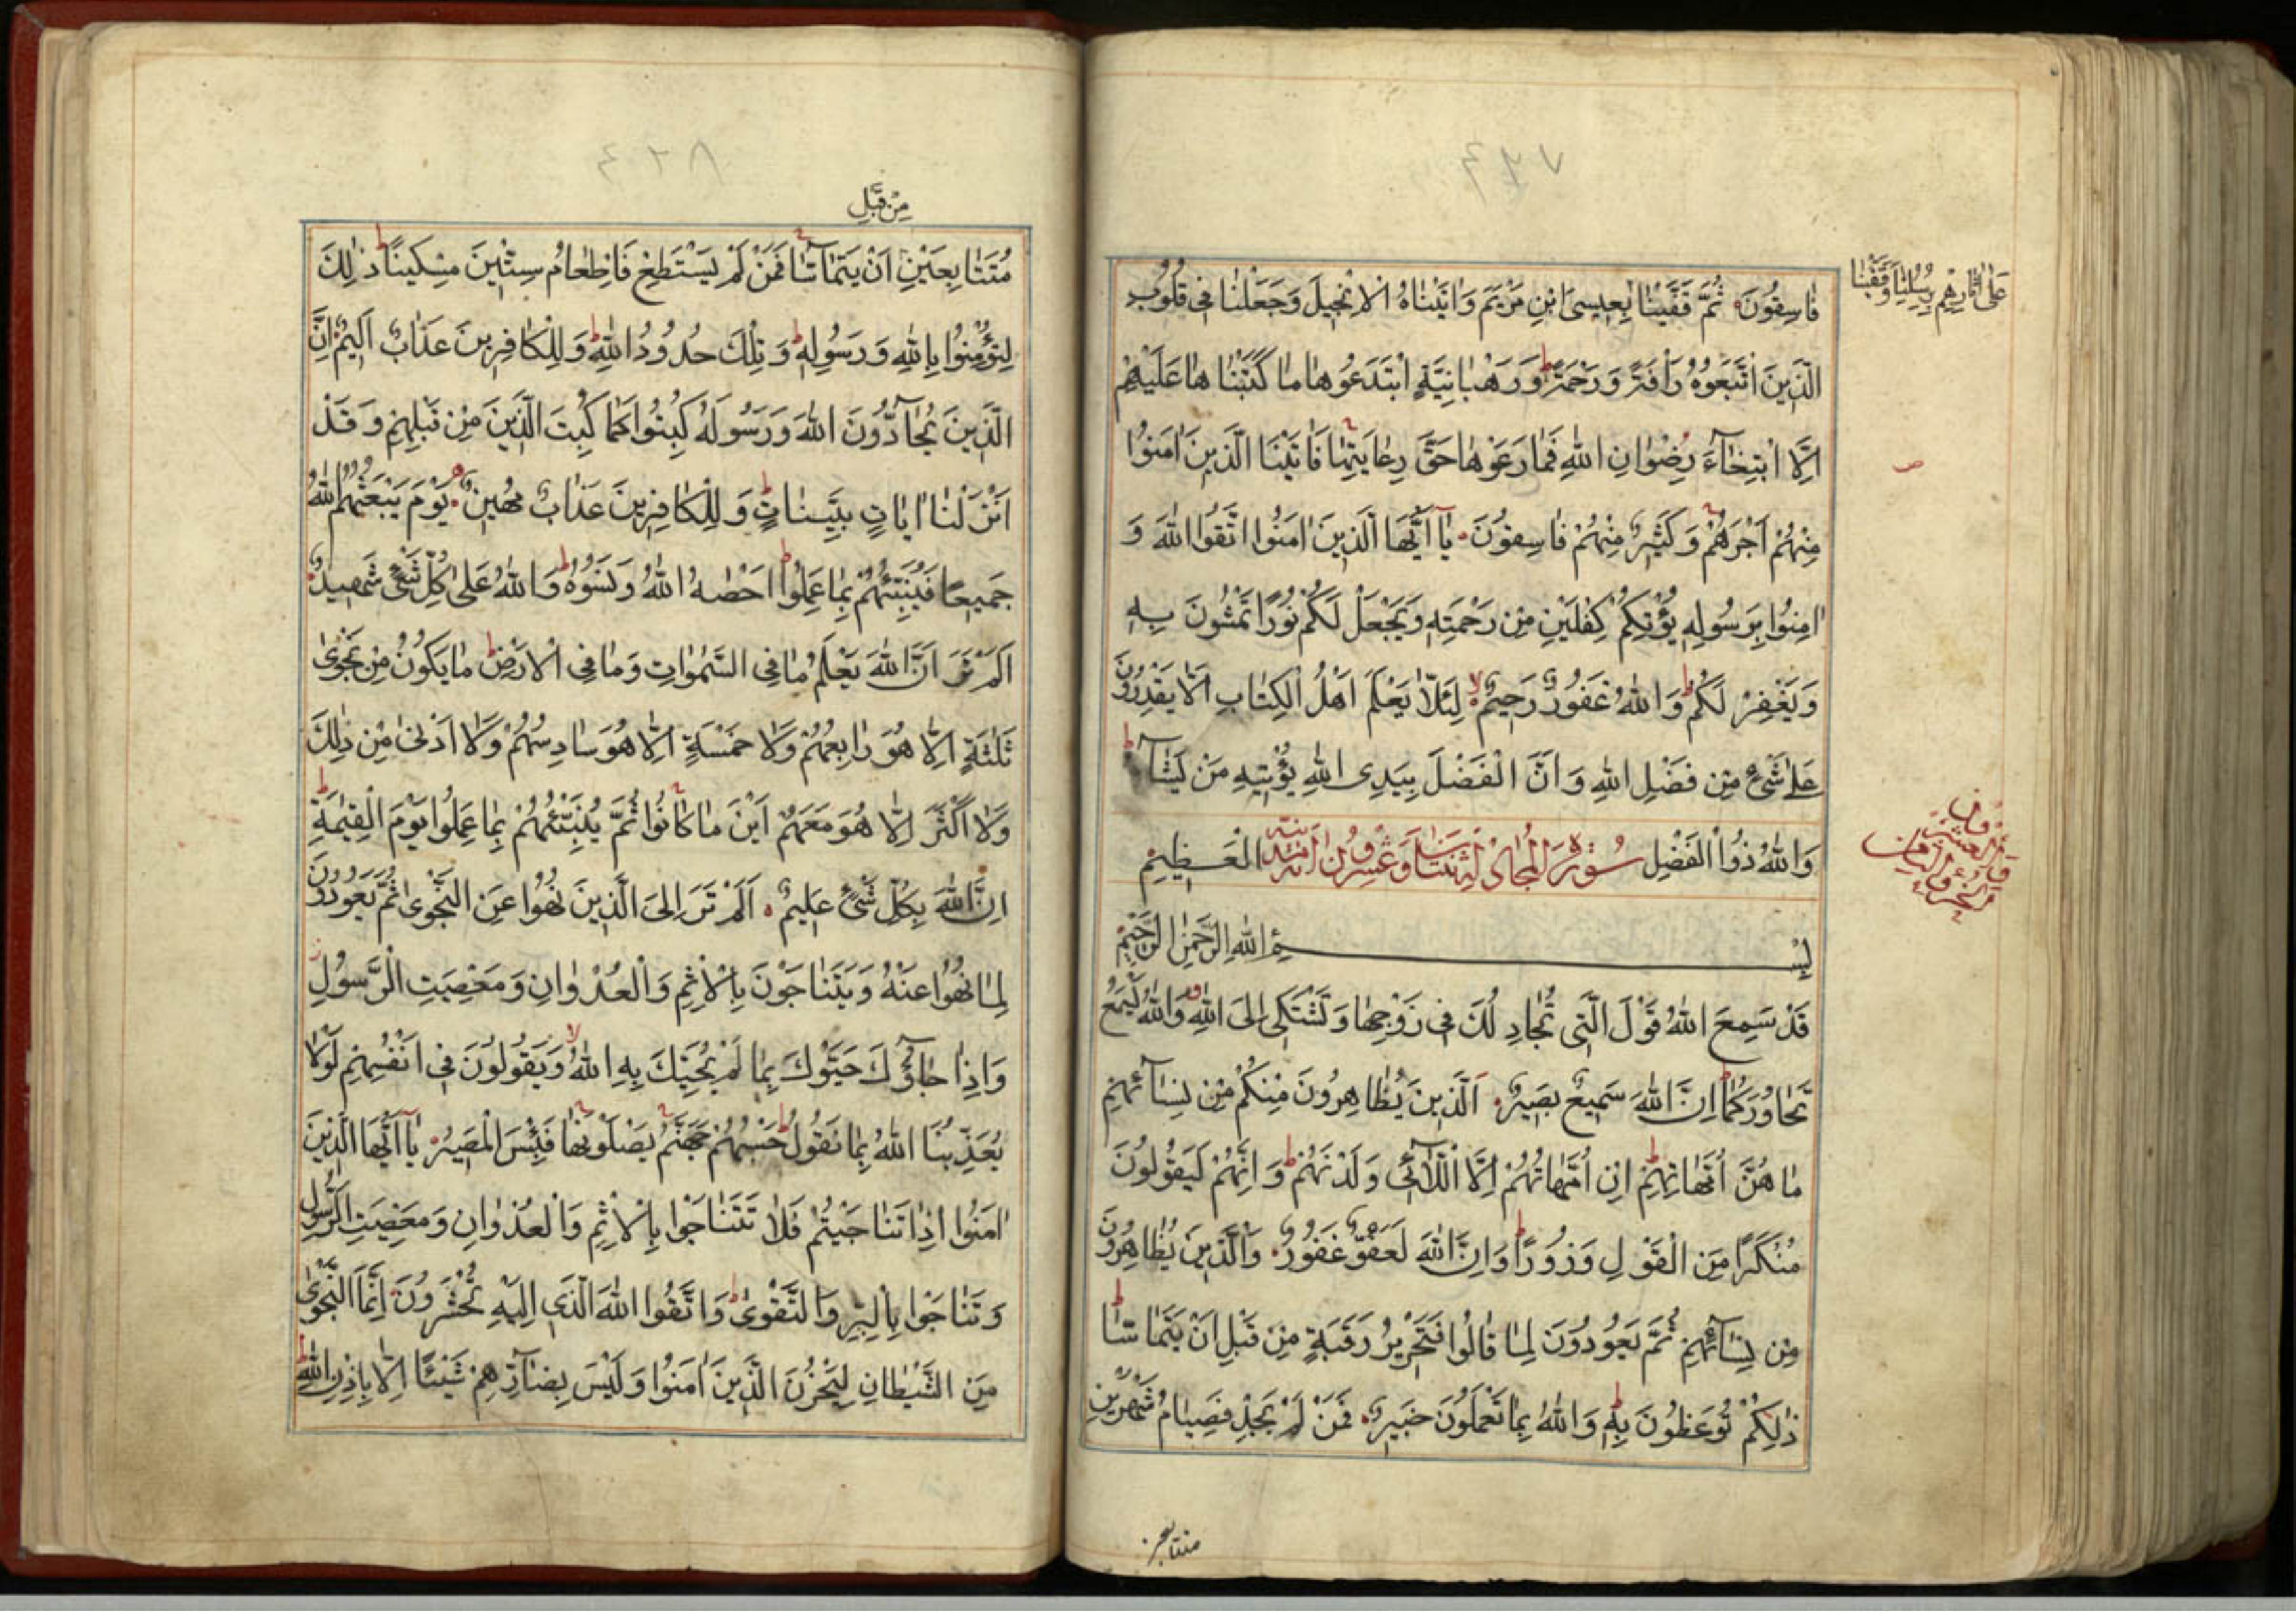 ٤٢٧
على اثارهم برسلنا وقفينا
فَاسِقُونَ ثُمَّ قَفَّيْنَا بِعِيسَى ابْنِ مَرْيَمَ وَاتَيْنَاهُ الْاِنْجِيلَ وَجَعَلْنَا فِي قُلُوبِ
الَّذِينَ اتَّبَعُوهُ رَاْفَةً وَرَحْمَةً ط وَرَهْبَانِيَّةٍ ابْتَدَعُوهَا مَا كَتَبْنَاهَا عَلَيْهِمْ
اِلَّا ابْتِغَاءَ رِضْوَانِ اللهِ فَمَا رَعَوْهَا حَقَّ رِعَايَتِهَا فَاتَيْنَا الَّذِينَ امَنُوا
مِنْهُمْ اَجْرَهُمْ وَكَثِيرٌ مِنْهُمْ فَاسِقُونَ يَا اَيُّهَا الَّذِينَ امَنُوا اتَّقُوا اللهَ وَ
امِنُوا بِرَسُولِهِ يُؤْتِكُمْ كِفْلَيْنِ مِنْ رَحْمَتِهِ وَيَجْعَلْ لَكُمْ نُورًا تَمْشُونَ بِهِ
وَيَغْفِرْ لَكُمْ ط وَاللهُ غَفُورٌ رَحِيمٌ لا لِئَلَّا يَعْلَمَ اَهْلُ الْكِتَابِ اَلَّا يَقْدِرُونَ
عَلَى شَيْءٍ مِنْ فَضْلِ اللهِ وَاَنَّ الْفَضْلَ بِيَدِ اللهِ يُؤْتِيهِ مَنْ يَشَآءُ ط
وَاللهُ ذُوا الْفَضْلِ الْعَظِيمِ
بِسْمِ اللهِ الرَّحْمَنِ الرَّحِيمِ
قَدْ سَمِعَ اللهُ قَوْلَ الَّتِي تُجَادِلُكَ فِي زَوْجِهَا وَتَشْتَكِى اِلَى اللهِ وَاللهُ يَسْمَعُ
تَحَاوُرَكُمَا اِنَّ اللهَ سَمِيعٌ بَصِيرٌ اَلَّذِينَ يُظَاهِرُونَ مِنْكُمْ مِنْ نِسَآئِهِمْ
مَا هُنَّ اُمَّهَاتِهِمْ ط اِنْ اُمَّهَاتُهُمْ اِلَّا اللَّآئِي وَلَدْنَهُمْ ط وَاِنَّهُمْ لَيَقُولُونَ
مُنْكَرًا مِنَ الْقَوْلِ وَزُورًا ط وَاِنَّ اللهَ لَعَفُوٌّ غَفُورٌ وَالَّذِينَ يُظَاهِرُونَ
مِنْ نِسَآئِهِمْ ثُمَّ يَعُودُونَ لِمَا قَالُوا فَتَحْرِيرُ رَقَبَةٍ مِنْ قَبْلِ اَنْ يَتَمَاسَّا ط
ذَلِكُمْ تُوعَظُونَ بِهِ ط وَاللهُ بِمَا تَعْمَلُونَ خَبِيرٌ فَمَنْ لَمْ يَجِدْ فَصِيَامُ شَهْرَيْنِ
متتابعين
٤٢٨
مِنْ قَبْلِ
مُتَتَابِعَيْنِ اَنْ يَتَمَاسَّا فَمَنْ لَمْ يَسْتَطِعْ فَاِطْعَامُ سِتِّينَ مِسْكِينًا ط ذَلِكَ
لِتُؤْمِنُوا بِاللهِ وَرَسُولِهِ ط وَتِلْكَ حُدُودُ اللهِ ط وَلِلْكَافِرِينَ عَذَابٌ اَلِيمٌ اِنَّ
الَّذِينَ يُحَآدُّونَ اللهَ وَرَسُولَهُ كُبِتُوا كَمَا كُبِتَ الَّذِينَ مِنْ قَبْلِهِمْ وَقَدْ
اَنْزَلْنَا ايَاتٍ بَيِّنَاتٍ ط وَلِلْكَافِرِينَ عَذَابٌ مُهِينٌ يَوْمَ يَبْعَثُهُمُ اللهُ
جَمِيعًا فَيُنَبِّئُهُمْ بِمَا عَمِلُوا ط اَحْصَهُ اللهُ وَنَسُوهُ ط وَاللهُ عَلَى كُلِّ شَيْءٍ شَهِيدٌ
اَلَمْ تَرَ اَنَّ اللهَ يَعْلَمُ مَا فِي السَّمَوَاتِ وَمَا فِي الْاَرْضِ ط مَا يَكُونُ مِنْ نَجْوَى
ثَلثَةٍ اِلَّا هُوَ رَابِعُهُمْ وَلَا خَمْسَةٍ اِلَّا هُوَ سَادِسُهُمْ وَلَا اَدْنَى مِنْ ذَلِكَ
وَلَا اَكْثَرَ اِلَّا هُوَ مَعَهُمْ اَيْنَ مَا كَانُوا ثُمَّ يُنَبِّئُهُمْ بِمَا عَمِلُوا يَوْمَ الْقِيمَةِ ط
اِنَّ اللهَ بِكُلِّ شَيْءٍ عَلِيمٌ اَلَمْ تَرَ اِلَى الَّذِينَ نُهُوا عَنِ النَّجْوَى ثُمَّ يَعُودُونَ
لِمَا نُهُوا عَنْهُ وَيَتَنَاجَوْنَ بِالْاِثْمِ وَالْعُدْوَانِ وَمَعْصِيَتِ الرَّسُولِ
وَاِذَا جَاؤُكَ حَيَّوْكَ بِمَا لَمْ يُحَيِّكَ بِهِ اللهُ لا وَيَقُولُونَ فِي اَنْفُسِهِمْ لَوْلَا
يُعَذِّبُنَا اللهُ بِمَا نَقُولُ ط حَسْبُهُمْ جَهَنَّمُ يَصْلَوْنَهَا فَبِئْسَ الْمَصِيرُ يَا اَيُّهَا الَّذِينَ
امَنُوا اِذَا تَنَاجَيْتُمْ فَلَا تَتَنَاجَوْا بِالْاِثْمِ وَالْعُدْوَانِ وَمَعْصِيَتِ الرَّسُولِ
وَتَنَاجَوْا بِالْبِرِّ وَالتَّقْوَى ط وَاتَّقُوا اللهَ الَّذِي اِلَيْهِ تُحْشَرُونَ اِنَّمَا النَّجْوَى
مِنَ الشَّيْطَانِ لِيَحْزُنَ الَّذِينَ امَنُوا وَلَيْسَ بِضَآرِّهِمْ شَيْئًا اِلَّا بِاِذْنِ اللهِ ط